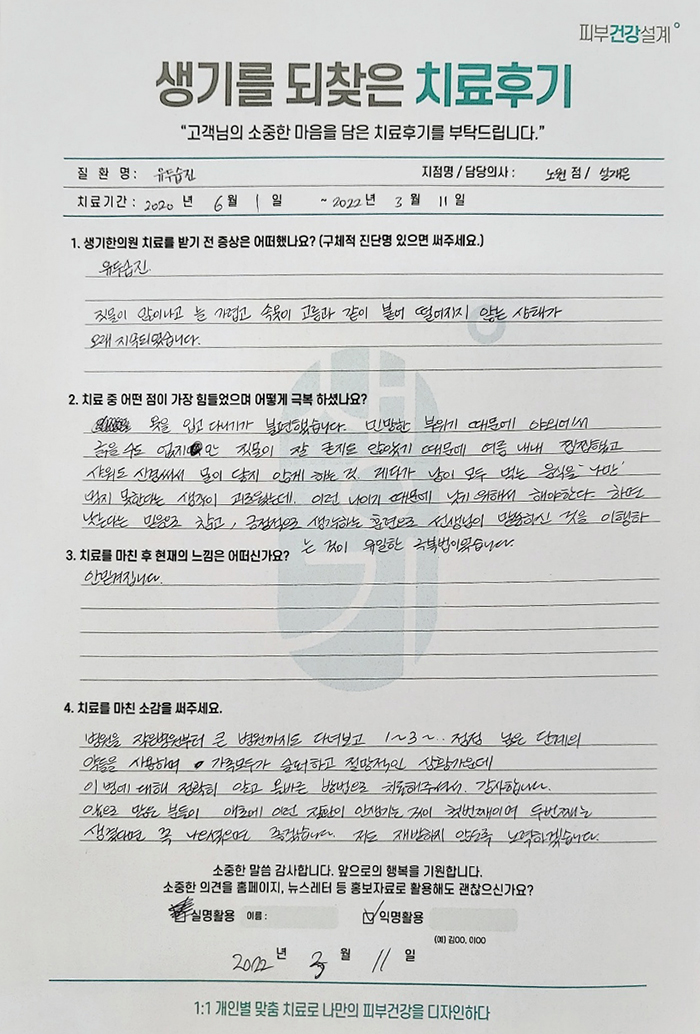 피부건강설계
생기를 되찾은 치료후기
"고객님의 소중한 마음을 담은 치료후기를 부탁드립니다."
질 환 명 : 유두습진 지점명 / 담당의사 : 노원 점 / 설재은
치료기간 : 2020 년 6 월 1 일 ~ 2022 년 3 월 11 일
1. 생기한의원 치료를 받기 전 증상은 어떠했나요? (구체적 진단명 있으면 써주세요.)
유두습진.
진물이 많이나고 늘 가렵고 속옷이 고름과 같이 붙어 떨어지지 않는 상태가
오래 지속되었습니다.
2. 치료 중 어떤 점이 가장 힘들었으며 어떻게 극복 하셨나요?
옷을 입고 다니기가 불편했습니다. 민망한 부위기 때문에 야외에서
긁을 수도 없지만 진물이 잘 굳지도 않았기 때문에 여름 내내 찝찝했고
샤워도 신경써서 물이 닿지 않게 하는 것. 게다가 남이 모두 먹는 음식을 '나만'
먹지 못한다는 생각이 괴로웠는데. 이런 나이기 때문에 낫기 위해서 해야한다. 하면
낫는다는 믿음으로 참고, 긍정적으로 생각하는 훈련으로 선생님이 말씀하신 것을 이행하
는 것이 유일한 극복법이었습니다.
3. 치료를 마친 후 현재의 느낌은 어떠신가요?
안믿겨집니다.
4. 치료를 마친 소감을 써주세요.
병원을 작은병원부터 큰 병원까지도 다녀보고 1~3~.. 점점 높은 단계의
약들을 사용하며 가족모두가 슬퍼하고 절망적인 상황가운데
이 병에 대해 정확히 알고 올바른 방법으로 치료해주셔서. 감사합니다.
앞으로 많은 분들이 애초에 이런 질환이 안생기는 것이 첫번째이며 두번째는
생겼다면 꼭 나으셨으면 좋겠습니다. 저도 재발하지 않도록 노력하겠습니다.
소중한 말씀 감사합니다. 앞으로의 행복을 기원합니다.
소중한 의견을 홈페이지, 뉴스레터 등 홍보자료로 활용해도 괜찮으신가요?
실명활용 이름 : 익명활용
(예) 김OO, 이OO
2022 년 3 월 11 일
1:1 개인별 맞춤 치료로 나만의 피부건강을 디자인하다